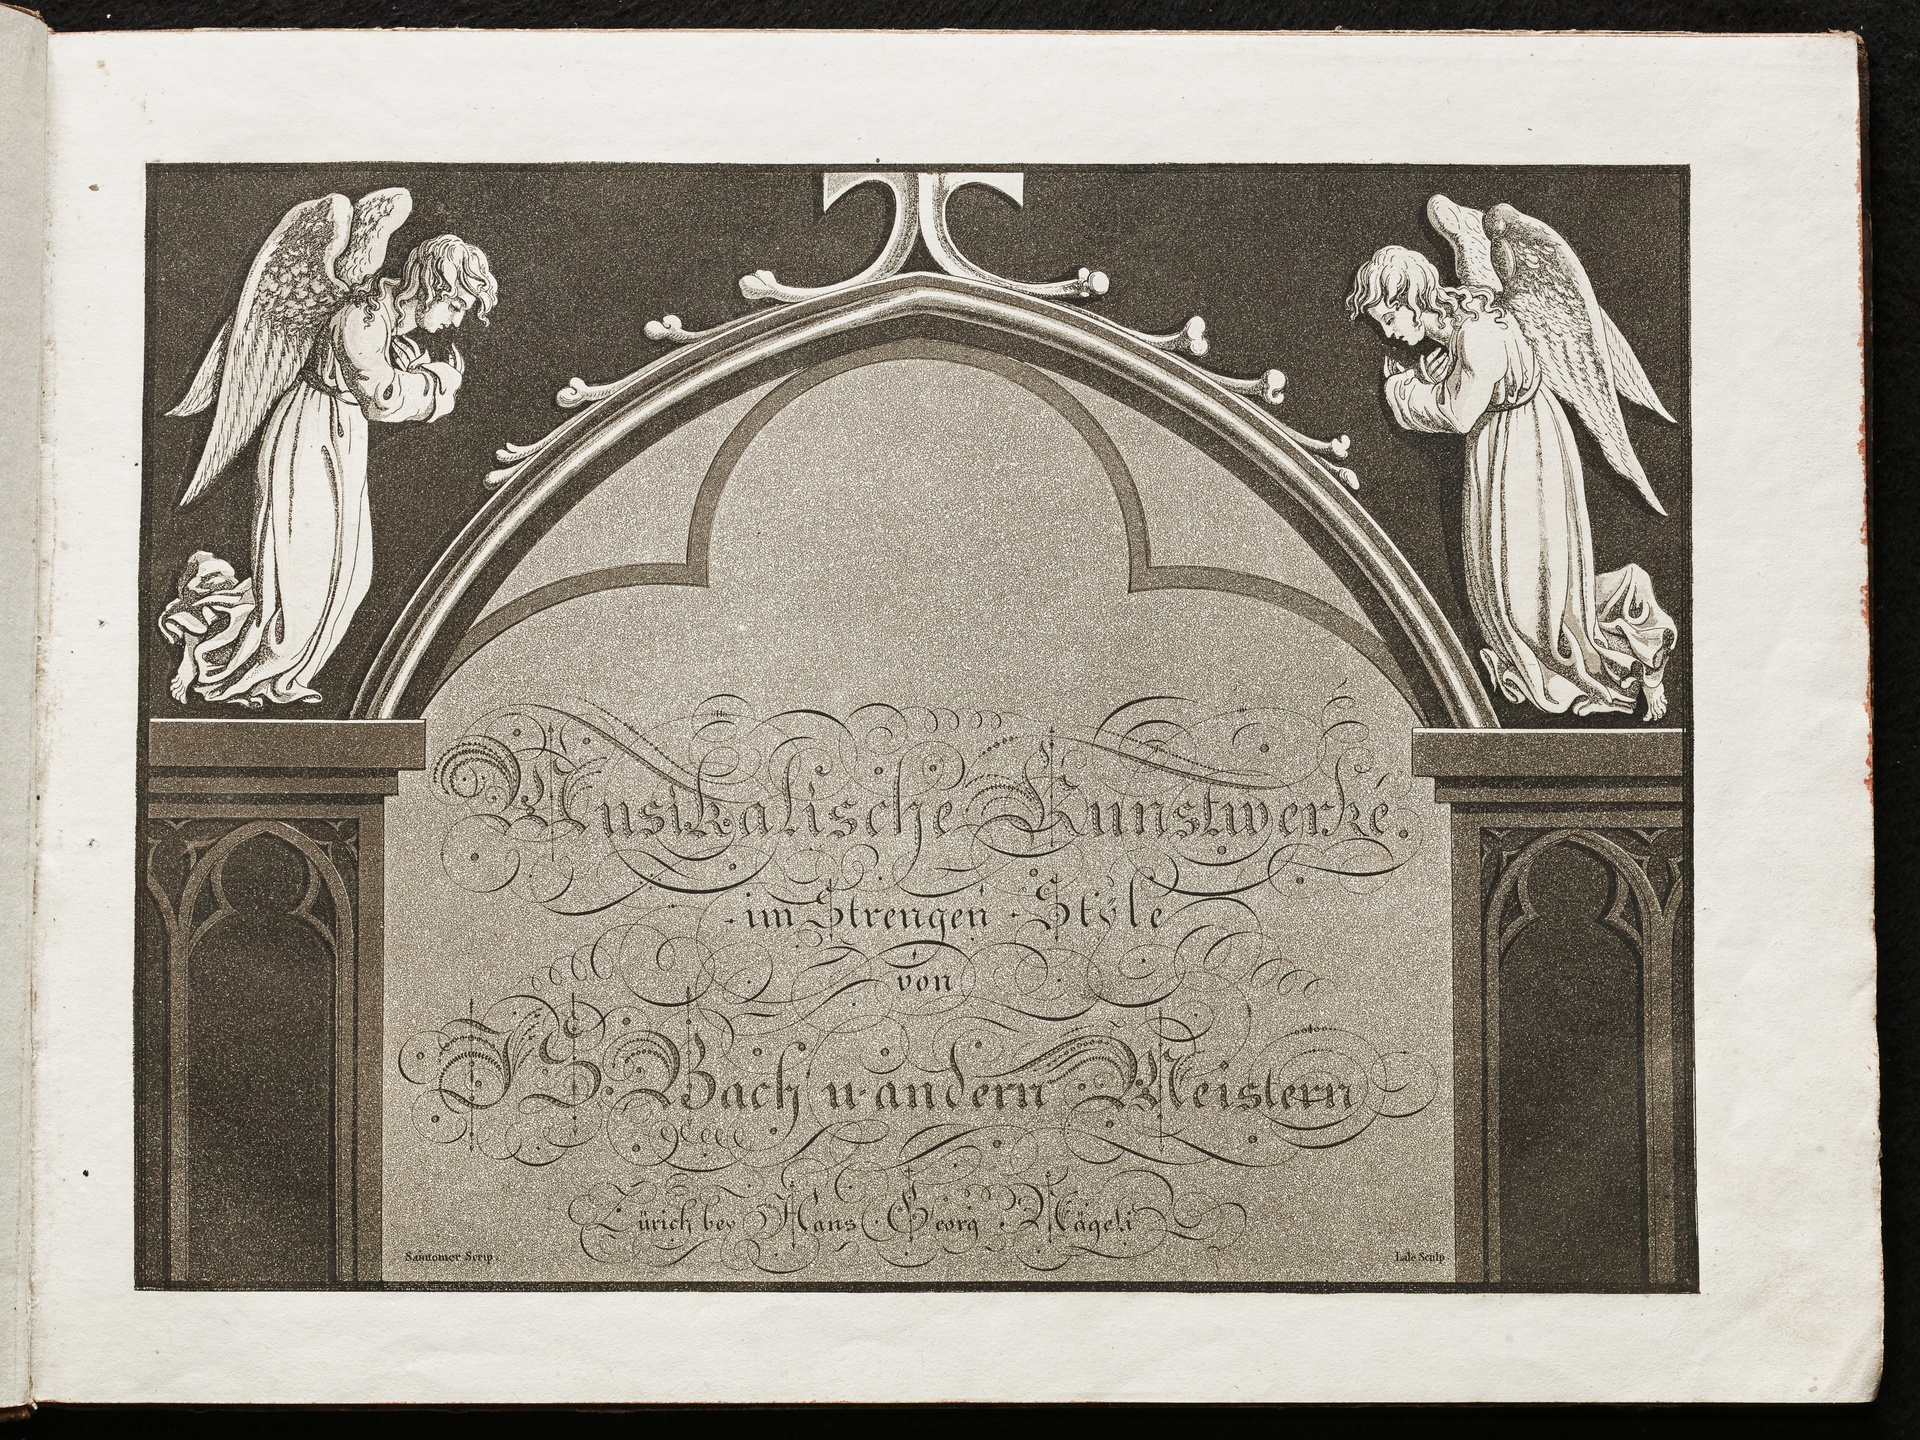 Musikalische Kunstwerke.
im Strengen Style
von
J. S. Bach u. andern Meistern
Zürich bey Hans Georg Nägeli
Santomer Scrip.
Lale Sculp